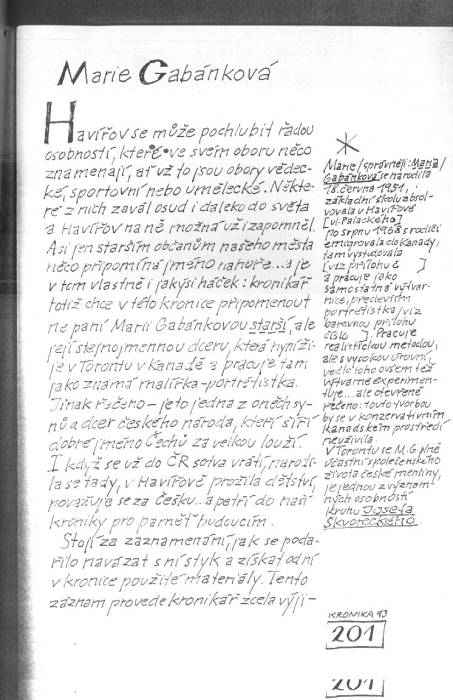 Marie Gabánková
Havířov se může pochlubit řadou
osobností, které ve svém oboru něco
znamenají, ať už to jsou obory vědec-
ké, sportovní nebo umělecké. Někte-
ré z nich zavál osud i daleko do světa
a Havířov na ně možná už i zapomněl.
Asi jen starším občanům našeho města
něco připomíná jméno nahoře...a je
v tom vlastně i jakýsi háček: kronikář
totiž chce v této kronice připomenout
ne paní Marii Gabánkovou starší, ale
její stejnojmennou dceru, která nyní ži-
je v Torontu v Kanadě a pracuje tam
jako známá malířka-portrétistka.
Jinak řečeno – je to jedna z oněch sy-
nů a dcer českého národa, kteří šíří
dobré jméno Čechů za velkou louží.
I když se už do ČR sotva vrátí, narodi-
la se tady, v Havířově prožila dětství,
považuje se za Češku...a patří do naší
kroniky pro paměť budoucím.
Stojí za zaznamenání, jak se poda-
řilo navázat s ní styk a získat od ní
v kronice použité materiály. Tento
záznam provede kronikář zcela výji-
*
Marie/správněji: Maria/
Gabánková se narodila
18. června 1951,
základní školu absol-
vovala v Havířově
[ul. Palackého]
Po srpnu 1968 s rodiči
emigrovala do Kanady,
tam vystudovala
[viz příloha č ]
a pracuje jako
samostatná výtvar-
nice, především
portrétistka /viz
barevnou přílohu
číslo ]. Pracuje
realistickou metodou,
ale s vysokou úrovní,
vedle toho ovšem též
výtvarně experimen-
tuje...ale otevřeně
řečeno: touto tvorbou
by se v konzervativním
kanadském prostředí
neuživila.
V Torontu se M.G. plně
účastní společenského
života české menšiny,
je jednou z význam-
ných osobností
kruhu Josefa
Škvoreckého.
KRONIKA 93
201
201